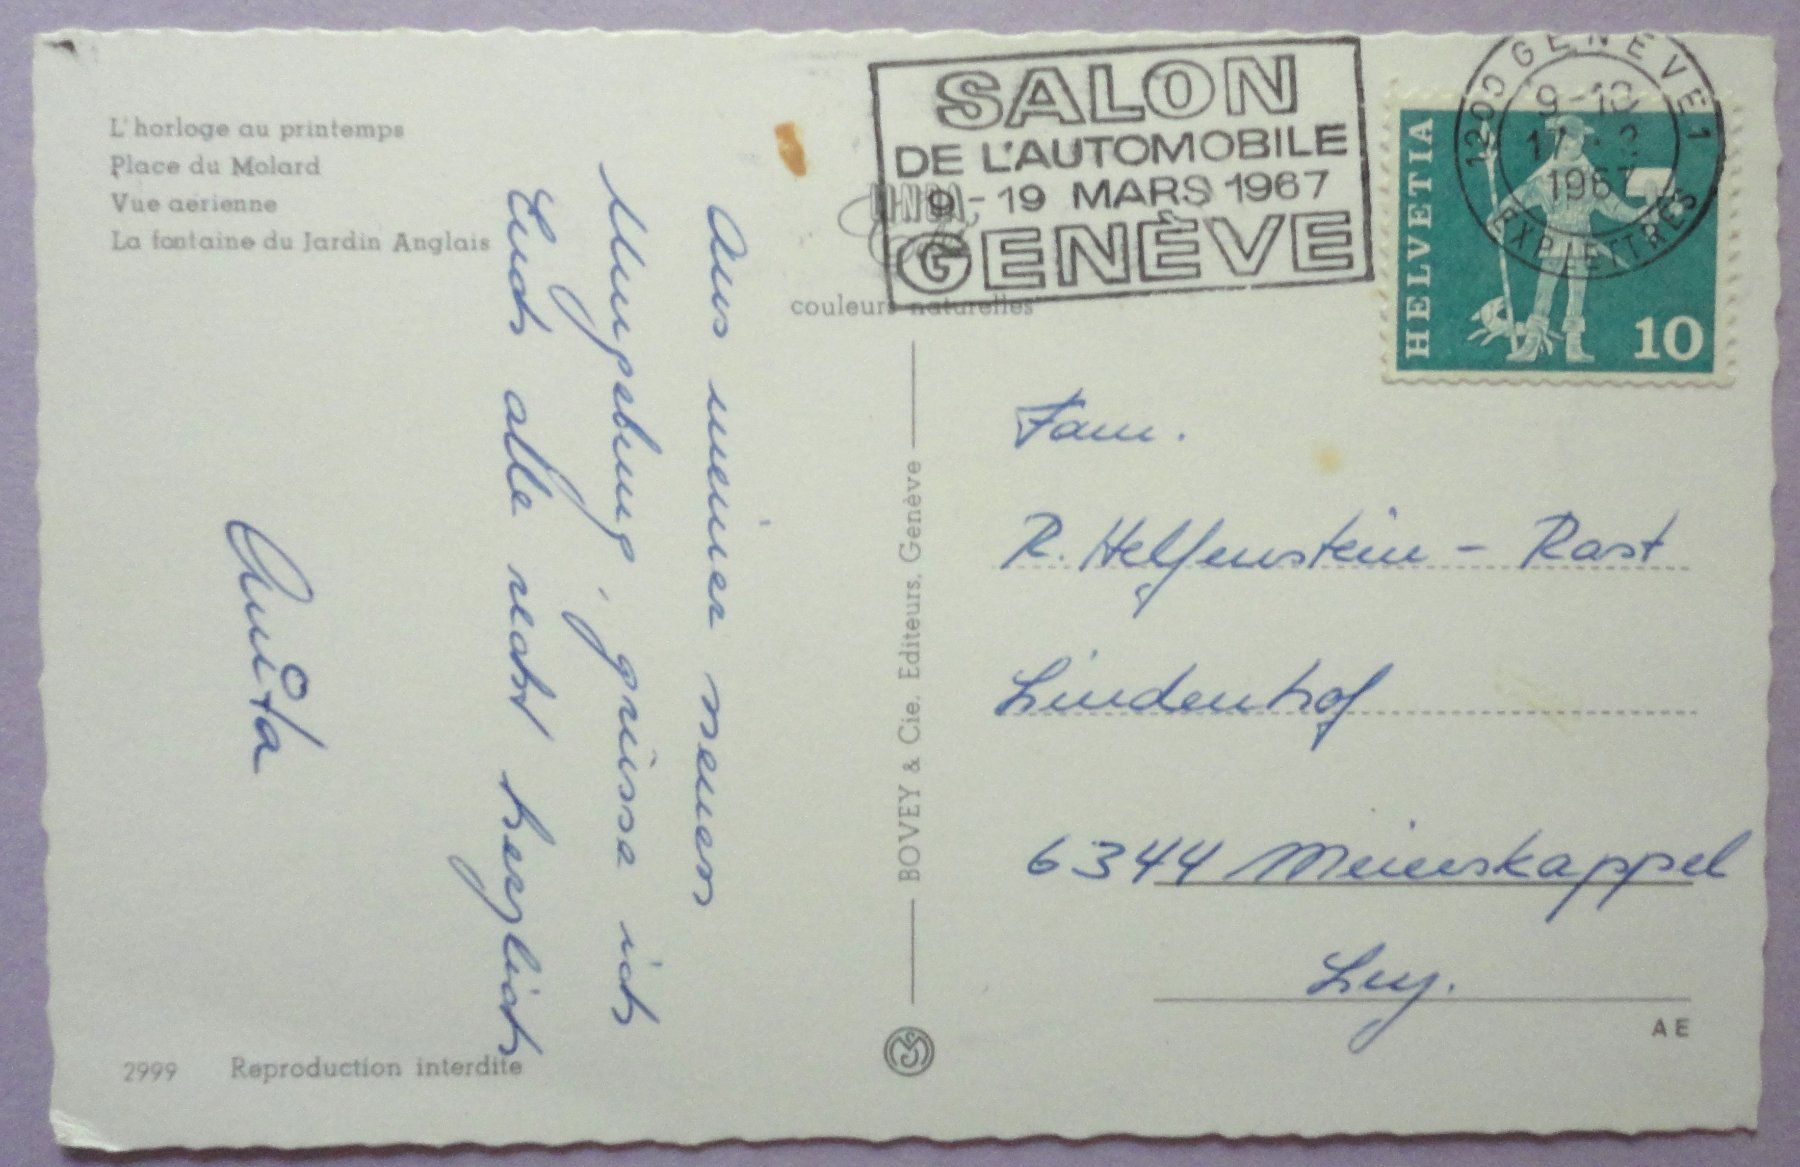 L'horloge au printemps
Place du Molard
Vue aérienne
La fontaine du Jardin Anglais
Aus meiner neuen
Umgebung, grüsse ich
Euch alle recht herzlich
Anita
2999 Reproduction interdite
couleurs naturelles
BOVEY & Cie. Editeurs. Genève
SALON
DE L'AUTOMOBILE
9-19 MARS 1967
GENÈVE
1200 GENÈVE 1
9-10
17.-3
1967
EXP. LETTRES
HELVETIA
10
Fam.
R. Helfenstein - Rast
Lindenhof
6344 Meierskappel
Luz.
AE